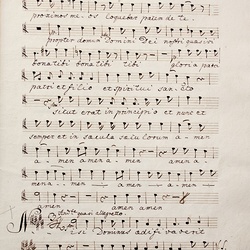 proximos meos loquebar pacem de te
propter domum Domini Dei nostri quaesivi
bona tibi bona tibi tibi gloria patri
patri et filio et spiritui sancto
sicut erat in principio et nunc et
semper et in saecula saeculorum amen
amen amen amen amen
men amen amen amen
amen amen
quasi allegretto
Nisi Dominus aedificaverit